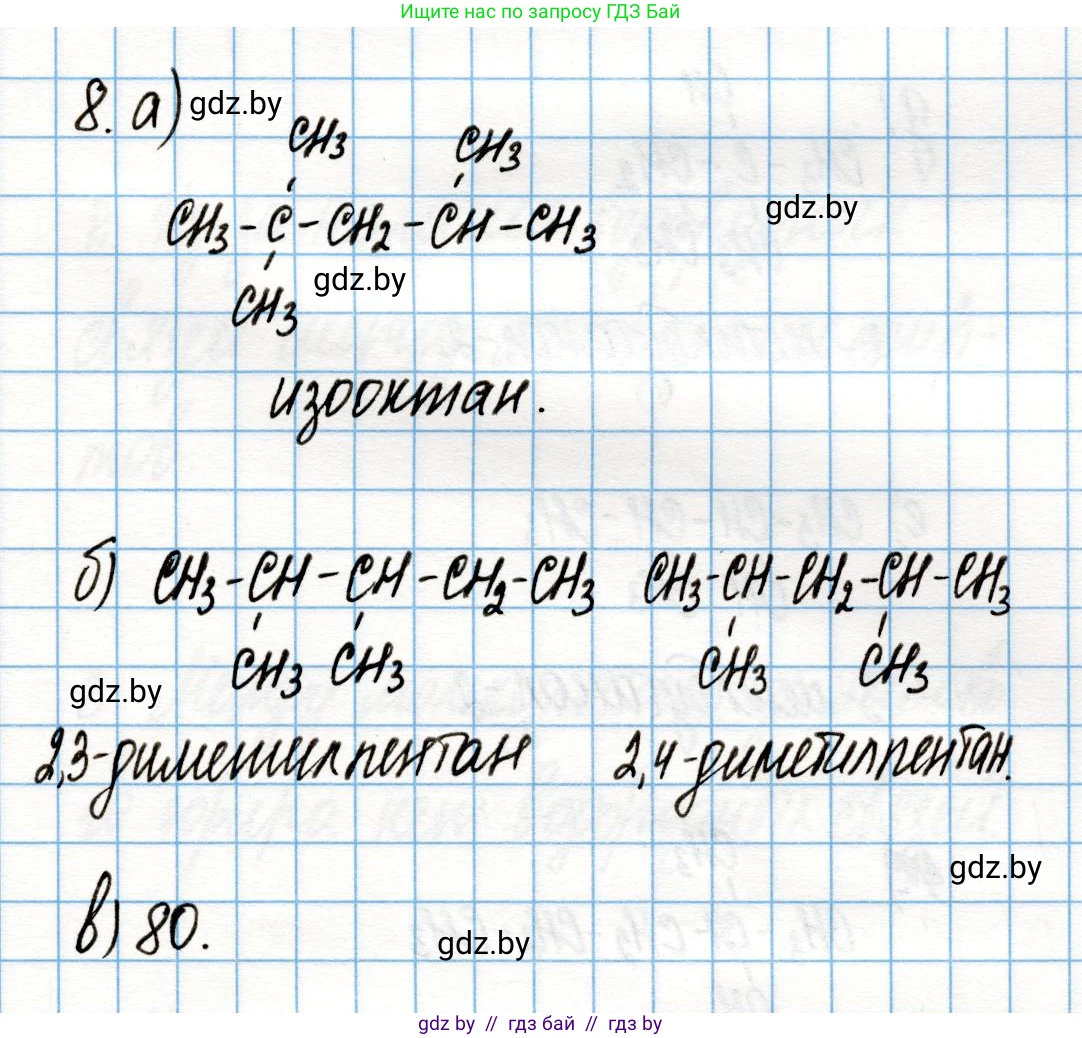 Ищите нас по запросу ГДЗ Бай
8. а) gdz.by
CH3 CH3
CH3 - C - CH2 - CH - CH3 gdz.by
gdz.by
CH3
изооктан.
б) CH3 - CH - CH - CH2 - CH3 CH3 - CH - CH2 - CH - CH3
CH3 CH3 CH3 CH3
gdz.by
2,3-диметилпентан 2,4-диметилпентан.
gdz.by
в) 80.
gdz.by
gdz by // гдз бай // гдз by